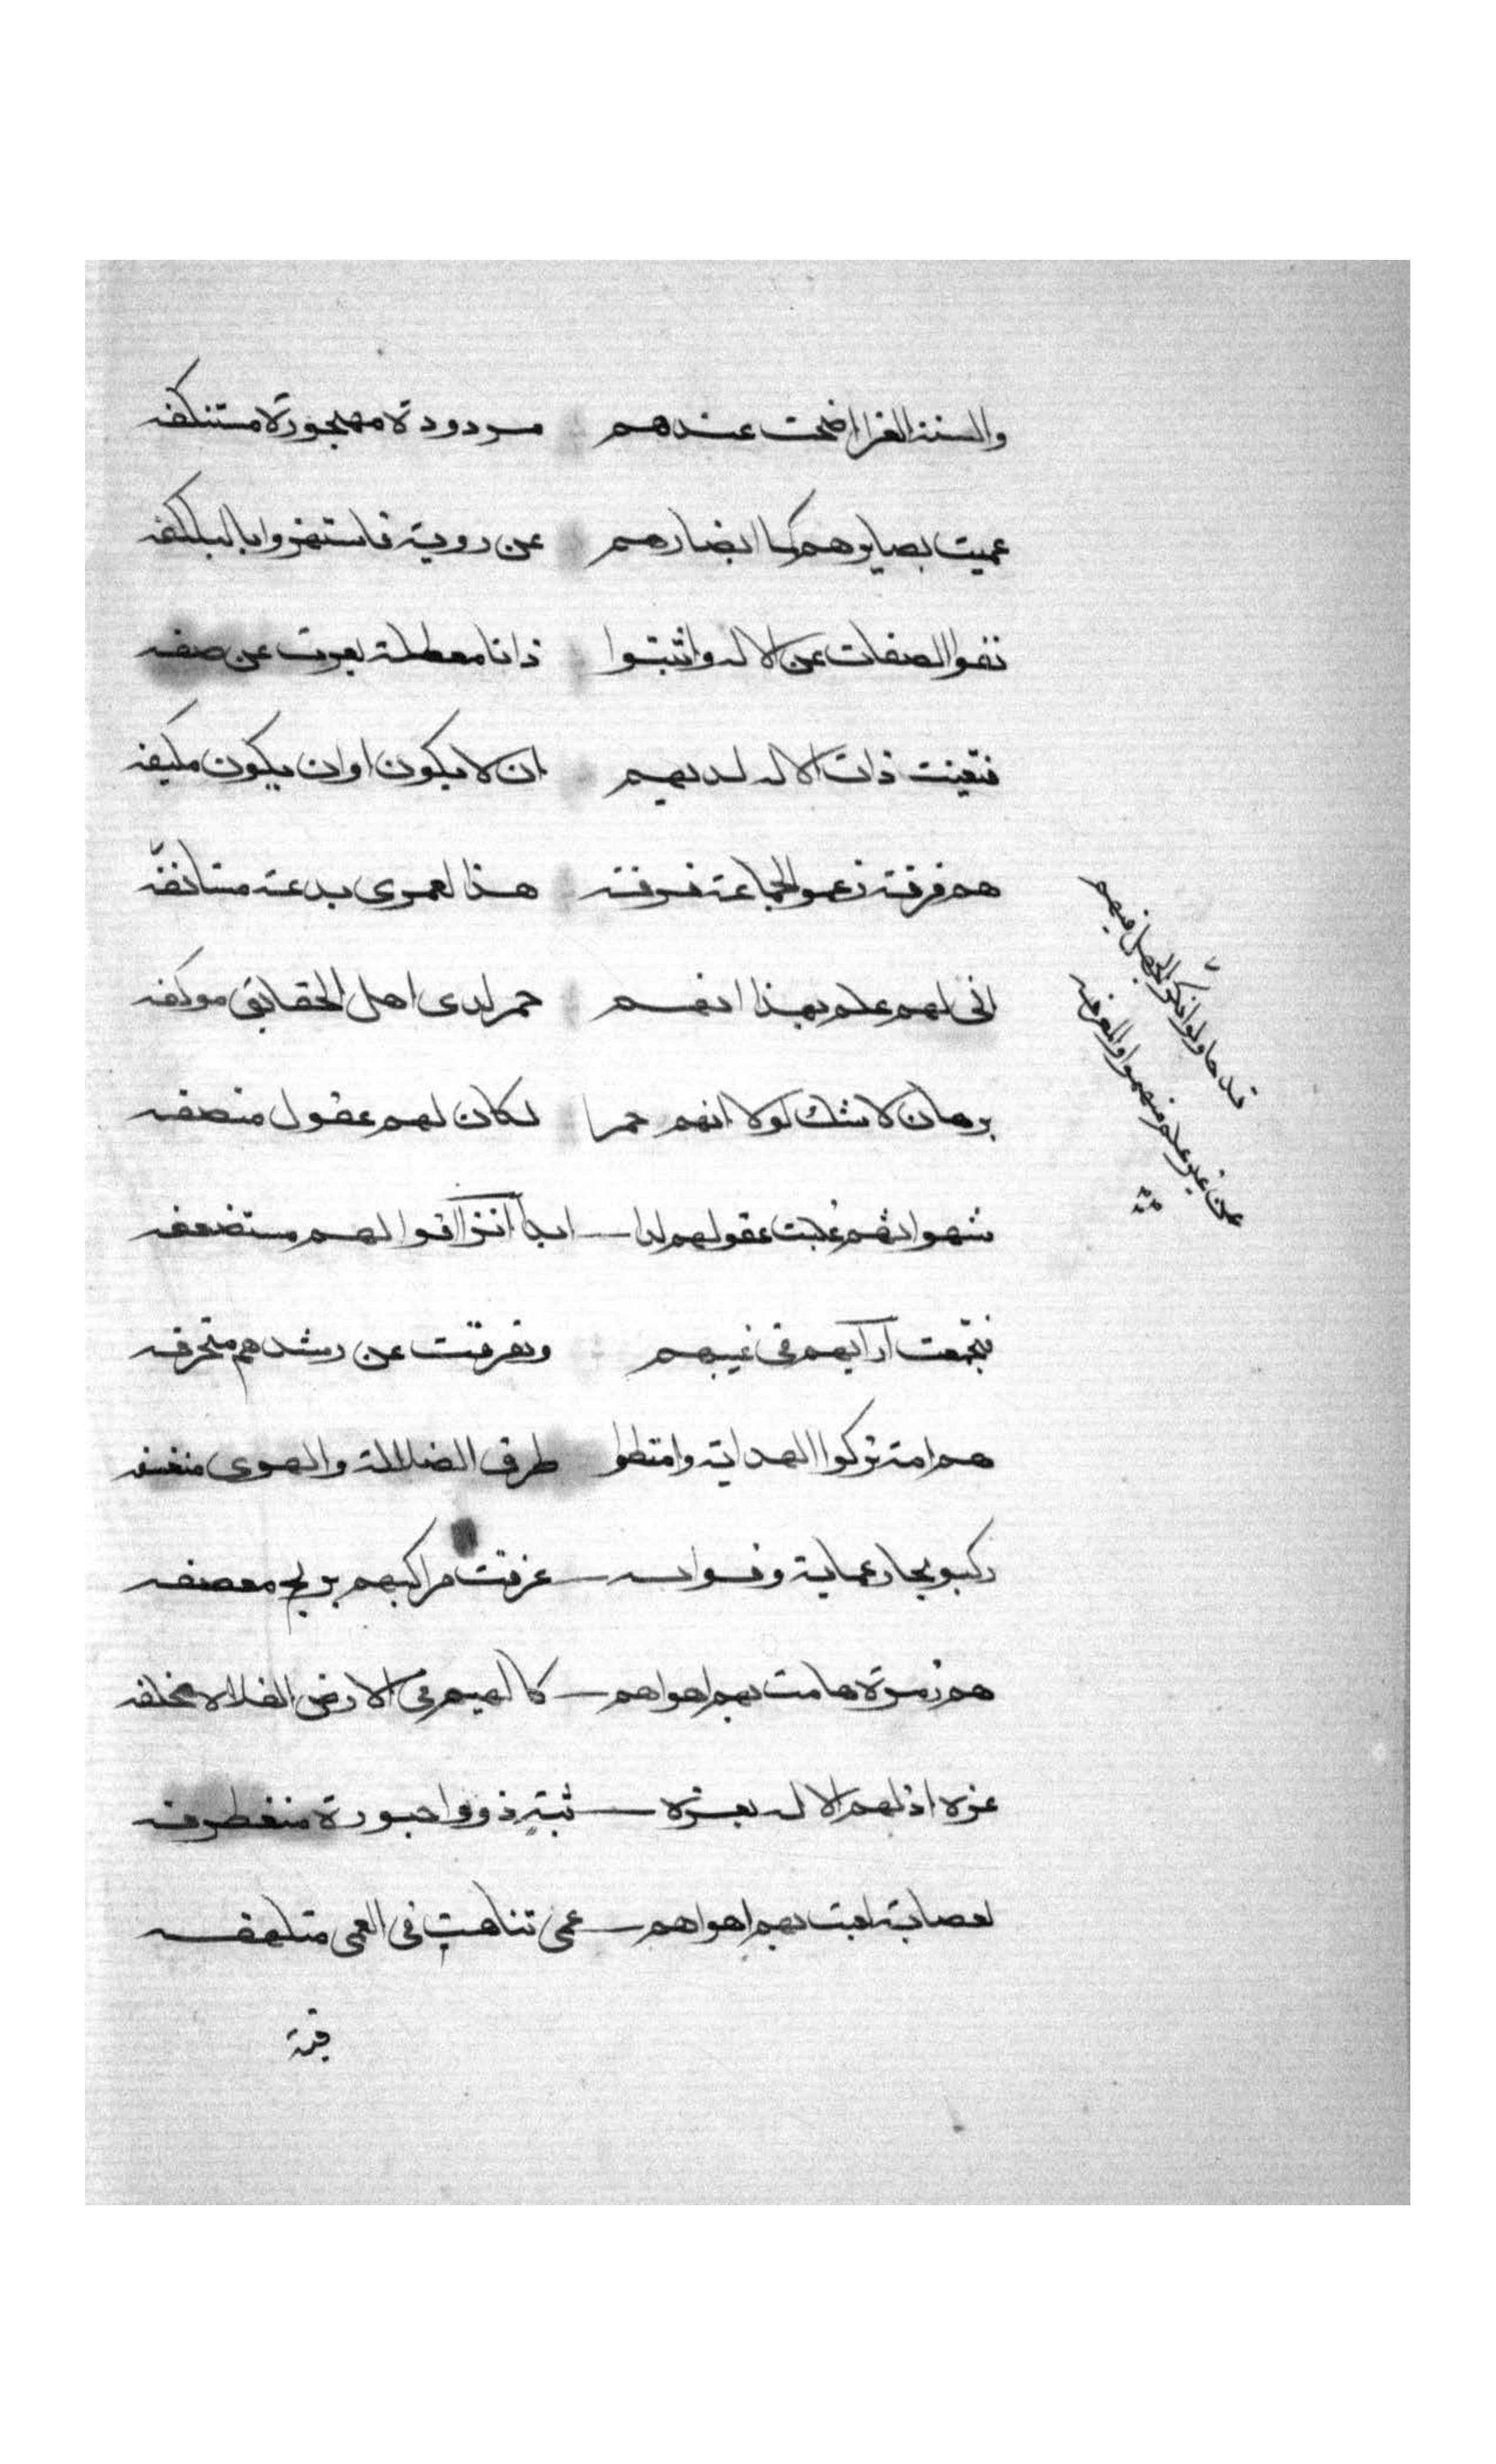 والسنة الغرا اضحت عندهم مردودة مهجورة مستنكفه
عميت بصايرهم كما ابصارهم عن روية فاستهزوا بالبلكفه
نفوا الصفات عن الاله واثبتوا ذاتا معطلة تعرت عن صفه
فتعينت ذات الاله لديهم ان لا يكون او ان يكون مكيفه
هم فرقة زعموا الجماعة فرقة هذا لعمرى بدعة مستانفه
انى لهم علم بهذا انهم حمر لدى اهل الحقايق موكفه
برهان لا شك لولا انهم حمرا لكان لهم عقول منصفه
شهواتهم غلبت عقولهم لذا ابدا تراقوا لهم مستضعفه
فتجمعت ارايهم فى غيهم وتفرقت عن رشدهم متحرفه
هم امة تركوا الهداية وامتطوا طرق الضلالة والهوى
ركبو بحار عماية غرقت مراكبهم بريح معصفه
هم زمرة هامت بهم اهواهم كالهيم فى الارض الفلاة مخلفه
عزة اذلهم الاله بعزة ذووا
لعصابة لعبت بهم اهواهم عمى تناهت فى العمى متلهفه
قد حاولوا نكر لجهل فيهم
عن غير علم منهموا والمعرفه